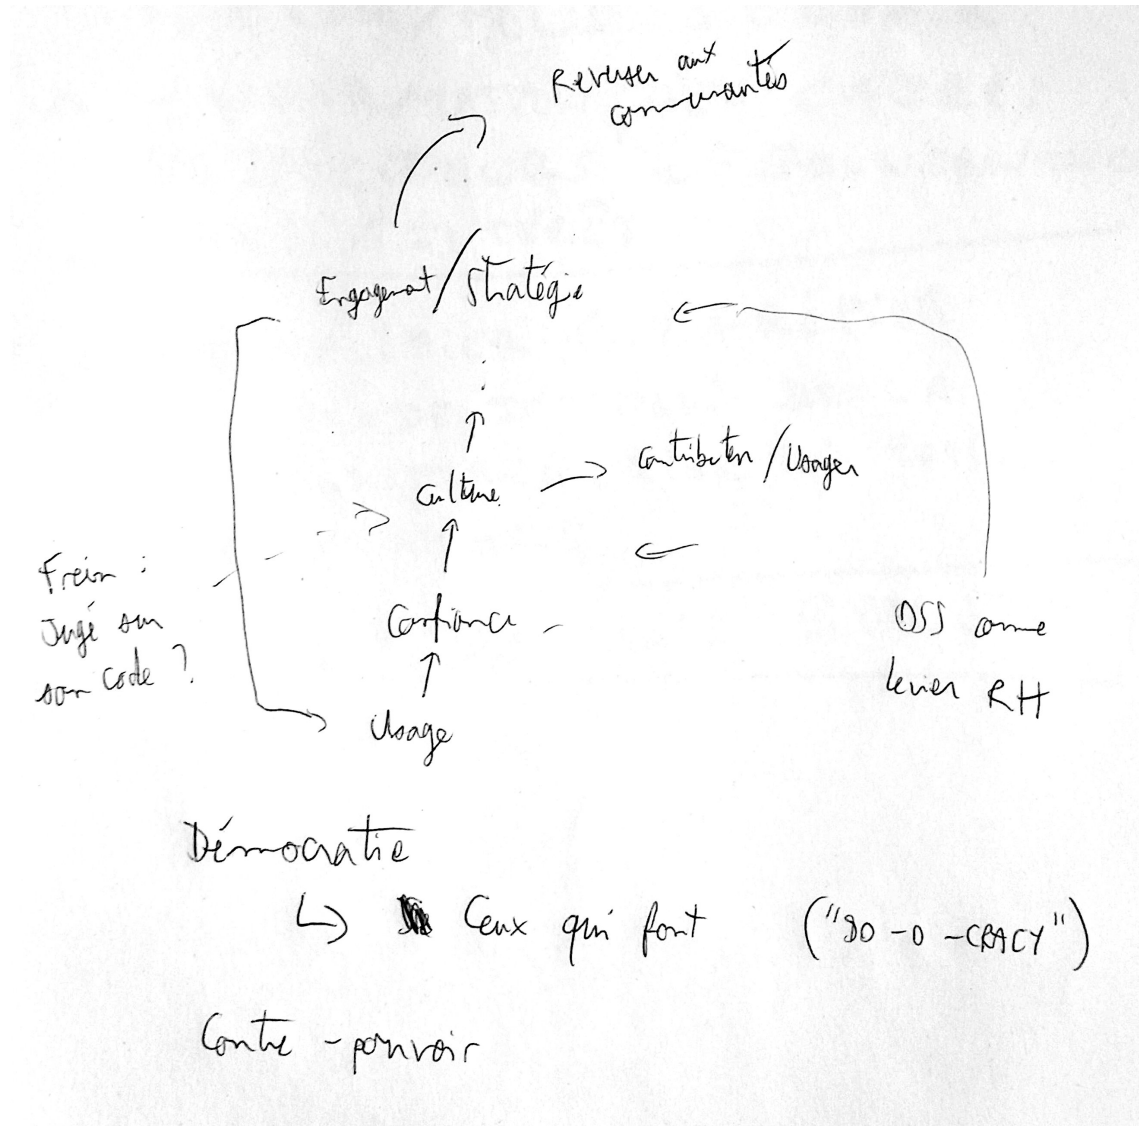 Reverser aux
communautés
Engagement / Stratégie
Culture
Contributeur / Usager
Frein :
Jugé sur
son code ?
Confiance
OSS comme
levier RH
Usage
Démocratie
Ceux qui font ("DO-O-CRACY")
Contre-pouvoir